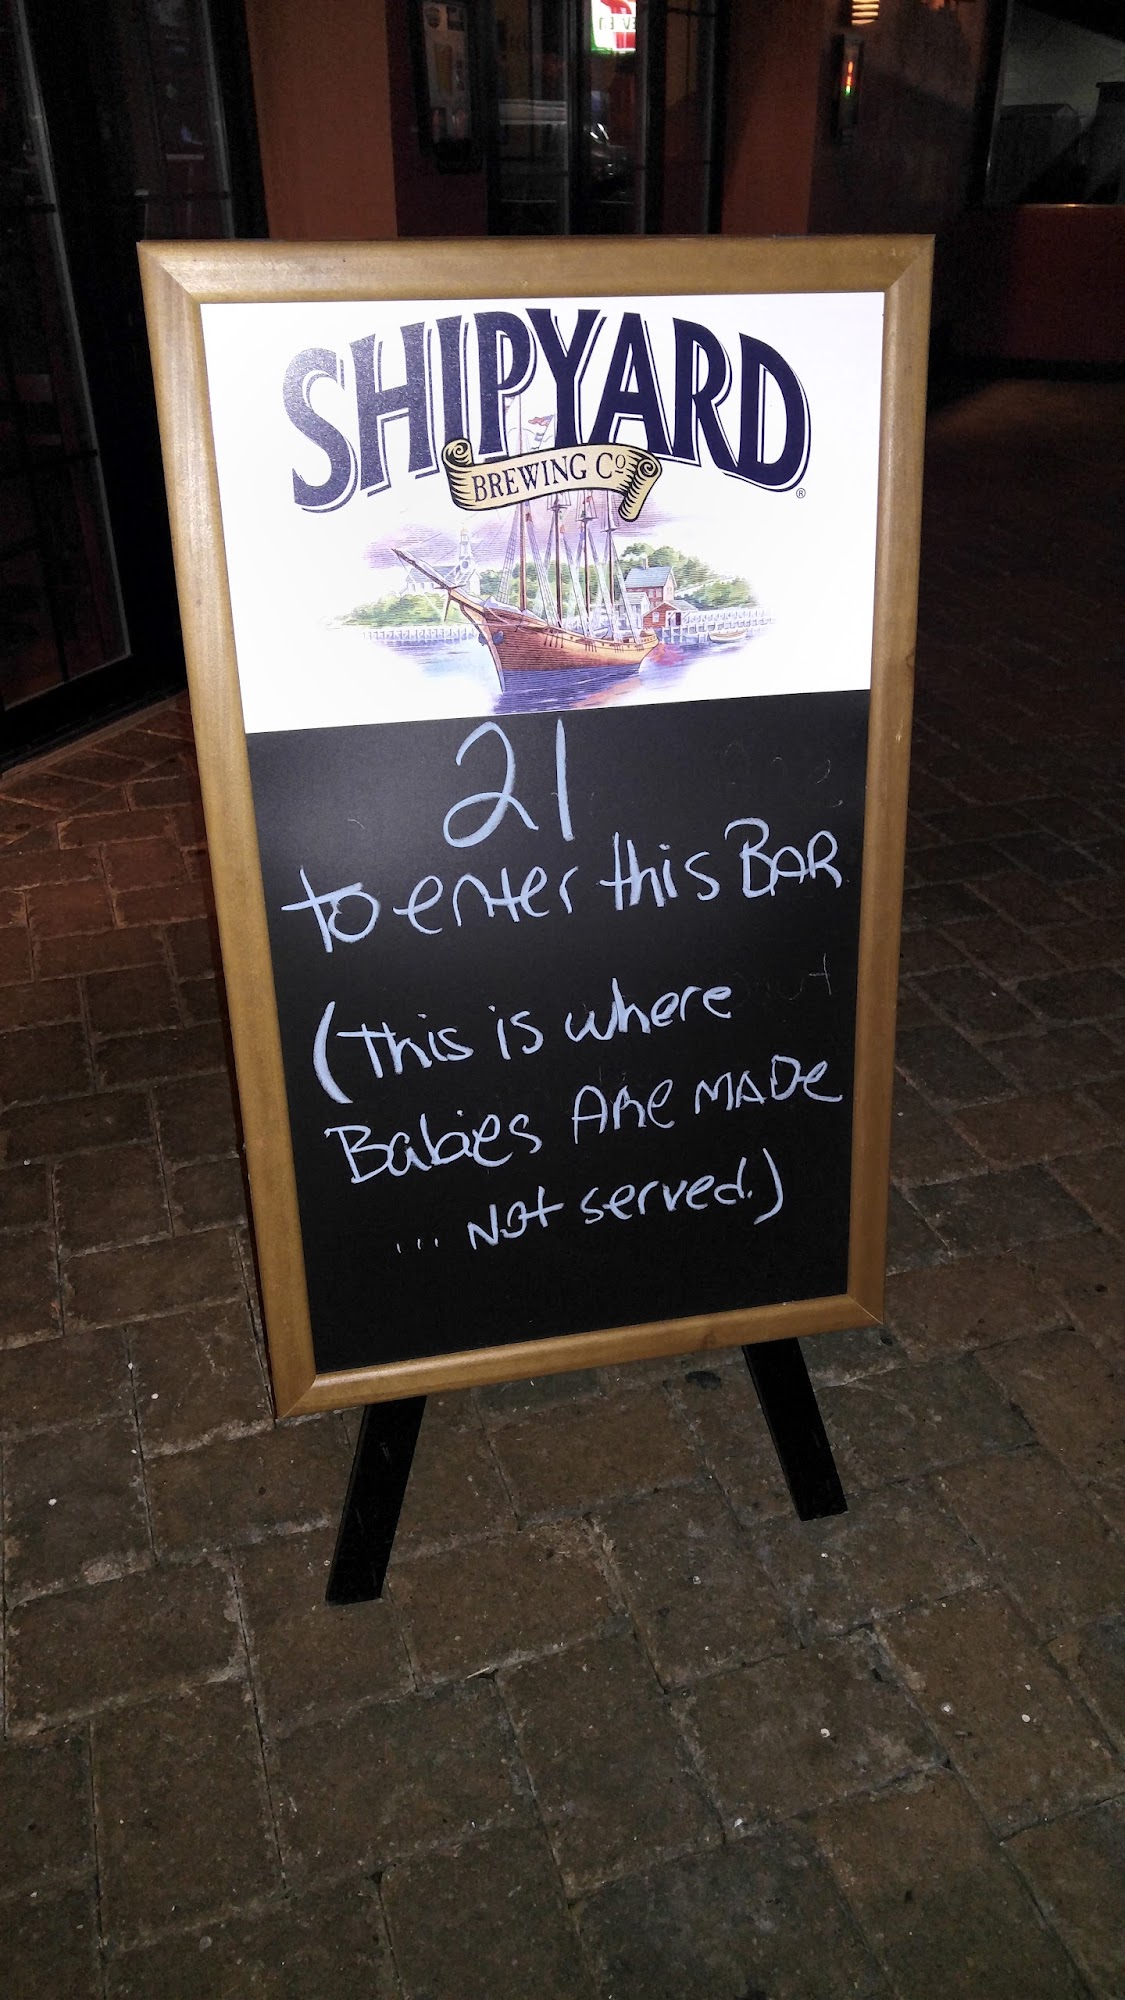 SHIPYARD
BREWING Co
®
21
to enter this BAR
(This is where
Babies ARe MADe
... Not served.)